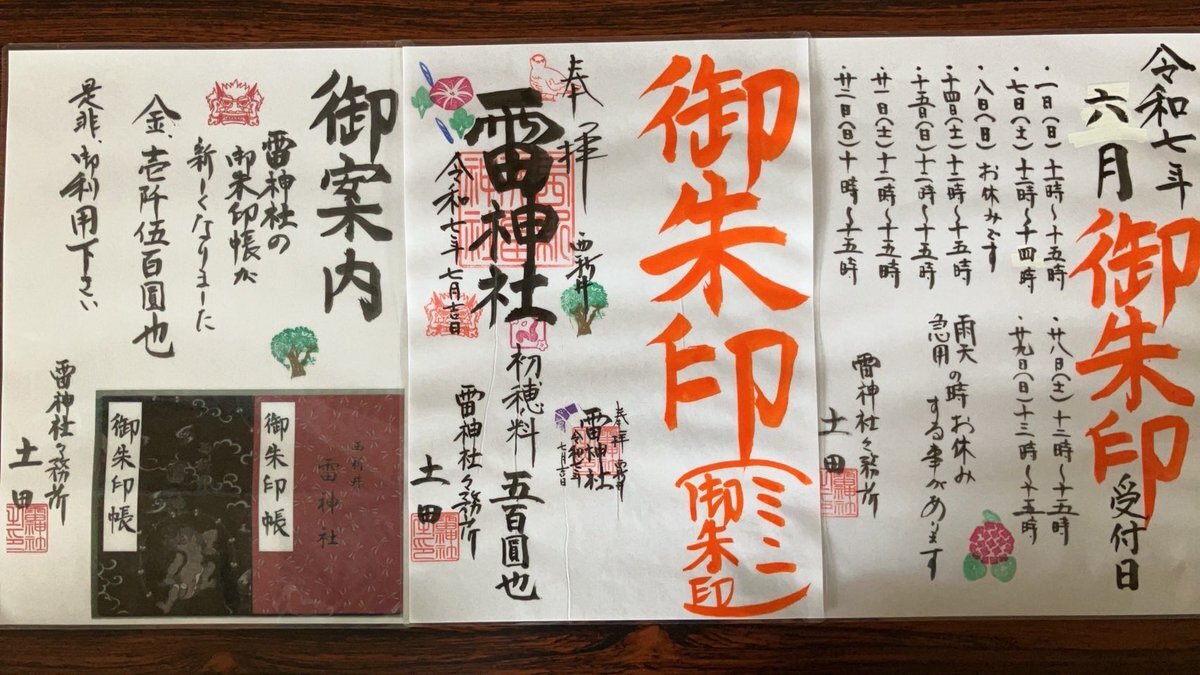 令和七年
六月 御朱印 受付日
・一日(日)十時〜十五時
・七日(土)十二時〜十四時
・八日(日)お休みです
・十四日(土)十二時〜十五時
・十五日(日)十二時〜十五時
・廿一日(土)十二時〜十五時
・廿二日(日)十時〜十五時
・廿八日(土)十二時〜十五時
・廿九日(日)十三時〜十五時
雨天の時お休み
急用の する事があります
雷神社々務所
土田
御朱印
(ミニ御朱印)
奉拝
西新井
雷神社
令和七年七月吉日
奉拝 西新井
雷神社
令和七年
七月吉日
初穂料 五百圓也
雷神社々務所
土田
御案内
雷神社の
御朱印帳が
新しくなりました
金、壱阡伍百圓也
是非、御利用下さい
西新井
雷神社
御朱印帳
御朱印帳
雷神社々務所
土田